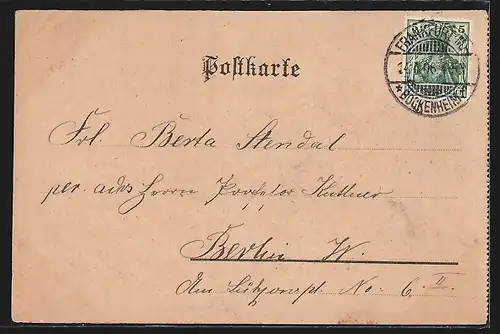 5
FRANKFURT (M.)
* BOCKENHEIM 1
Postkarte
Frl. Berta Stendal
per. adr. Herrn Profeſsor Kuttner
Berlin W.
Am Lützowpl No. 6 II.